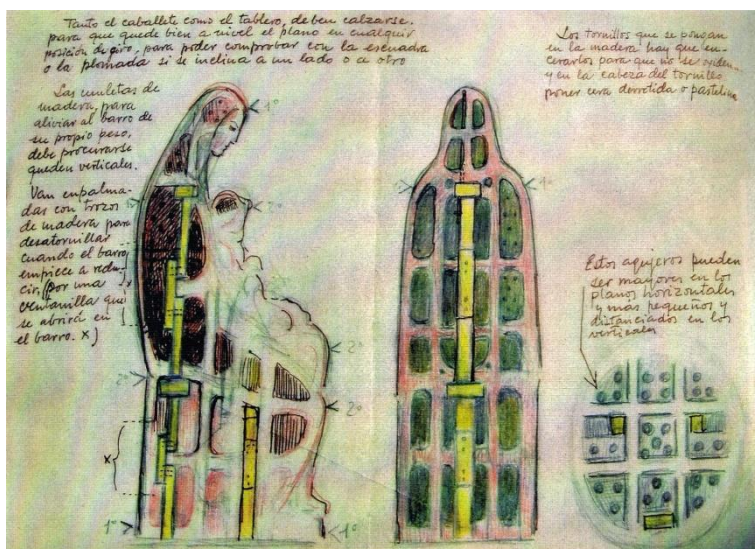 Tanto el caballete como el tablero, deben calzarse.
para que quede bien a nivel el plano en cualquier
posición de giro, para poder comprobar con la escuadra
o la plomada si se inclina a un lado o a otro
Las muletas de
madera, para
aliviar al barro de
su propio peso,
debe procurarse
queden verticales.
Van empalma-
das con trozos
de madera para
desatornillar
cuando el barro
empiece a redu-
cir, (por una
ventanilla que
se abrirá en
el barro. x)
Los tornillos que se pongan
en la madera hay que en-
cerarlos para que no se oxiden
y en la cabeza del tornillo
poner cera derretida o pastelina
Estos agujeros pueden
ser mayores en los
planos horizontales
y mas pequeños y
distanciados en los
verticales
1º
2º
2º
2º
2º
x
x
1º
1º